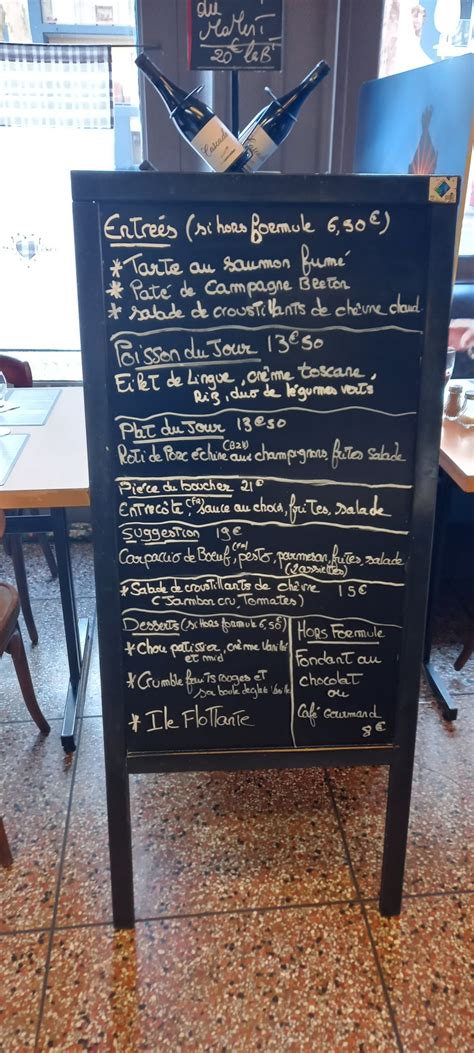 du
Moment
20€ la B
Cascade
Cascade
Entrées (si hors formule 6,50€)
* Tarte au saumon fumé
* Paté de Campagne Breton
* salade de croustillants de chèvre chaud
Poisson du Jour 13€50
Filet de Lingue, crème toscane,
Riz, duo de légumes verts
Plat du Jour 13€50
Roti de Porc échine aux champignons, frites salade
Pièce du boucher 21€
Entrecôte, sauce au choix, frites, salade
Suggestion 19€
Carpaccio de Boeuf, pesto, parmesan, frites, salade
(2 assiettes)
* Salade de croustillants de chèvre 15€
(Jambon cru, Tomates)
Desserts (si hors formule 6,50)
* Chou patissier, crème vanille
et miel
* Crumble fruits rouges et
sa boule de glace
* Ile Flottante
Hors Formule
Fondant au
chocolat
ou
Café Gourmand
8€